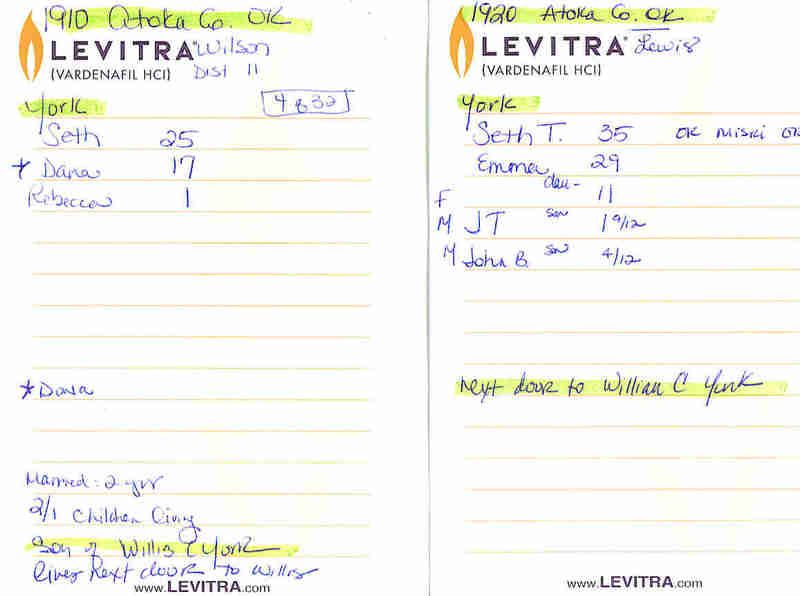 1910 Atoka Co. OK
LEVITRA® Wilson
(VARDENAFIL HCI) Dist 11
York 4832
Seth 25
* Dana 17
Rebecca 1
* Dana
Married: 2 yrs
2/1 Children Living
Son of Willis C York
Lives Next door to Willis
www.LEVITRA.com
1920 Atoka Co. OK
LEVITRA® Lewis
(VARDENAFIL HCI)
York
Seth T. 35 OK Miss OK
Emma 29
F dau- 11
M JT son 1 9/12
M John B. son 4/12
Next door to William C York
www.LEVITRA.com